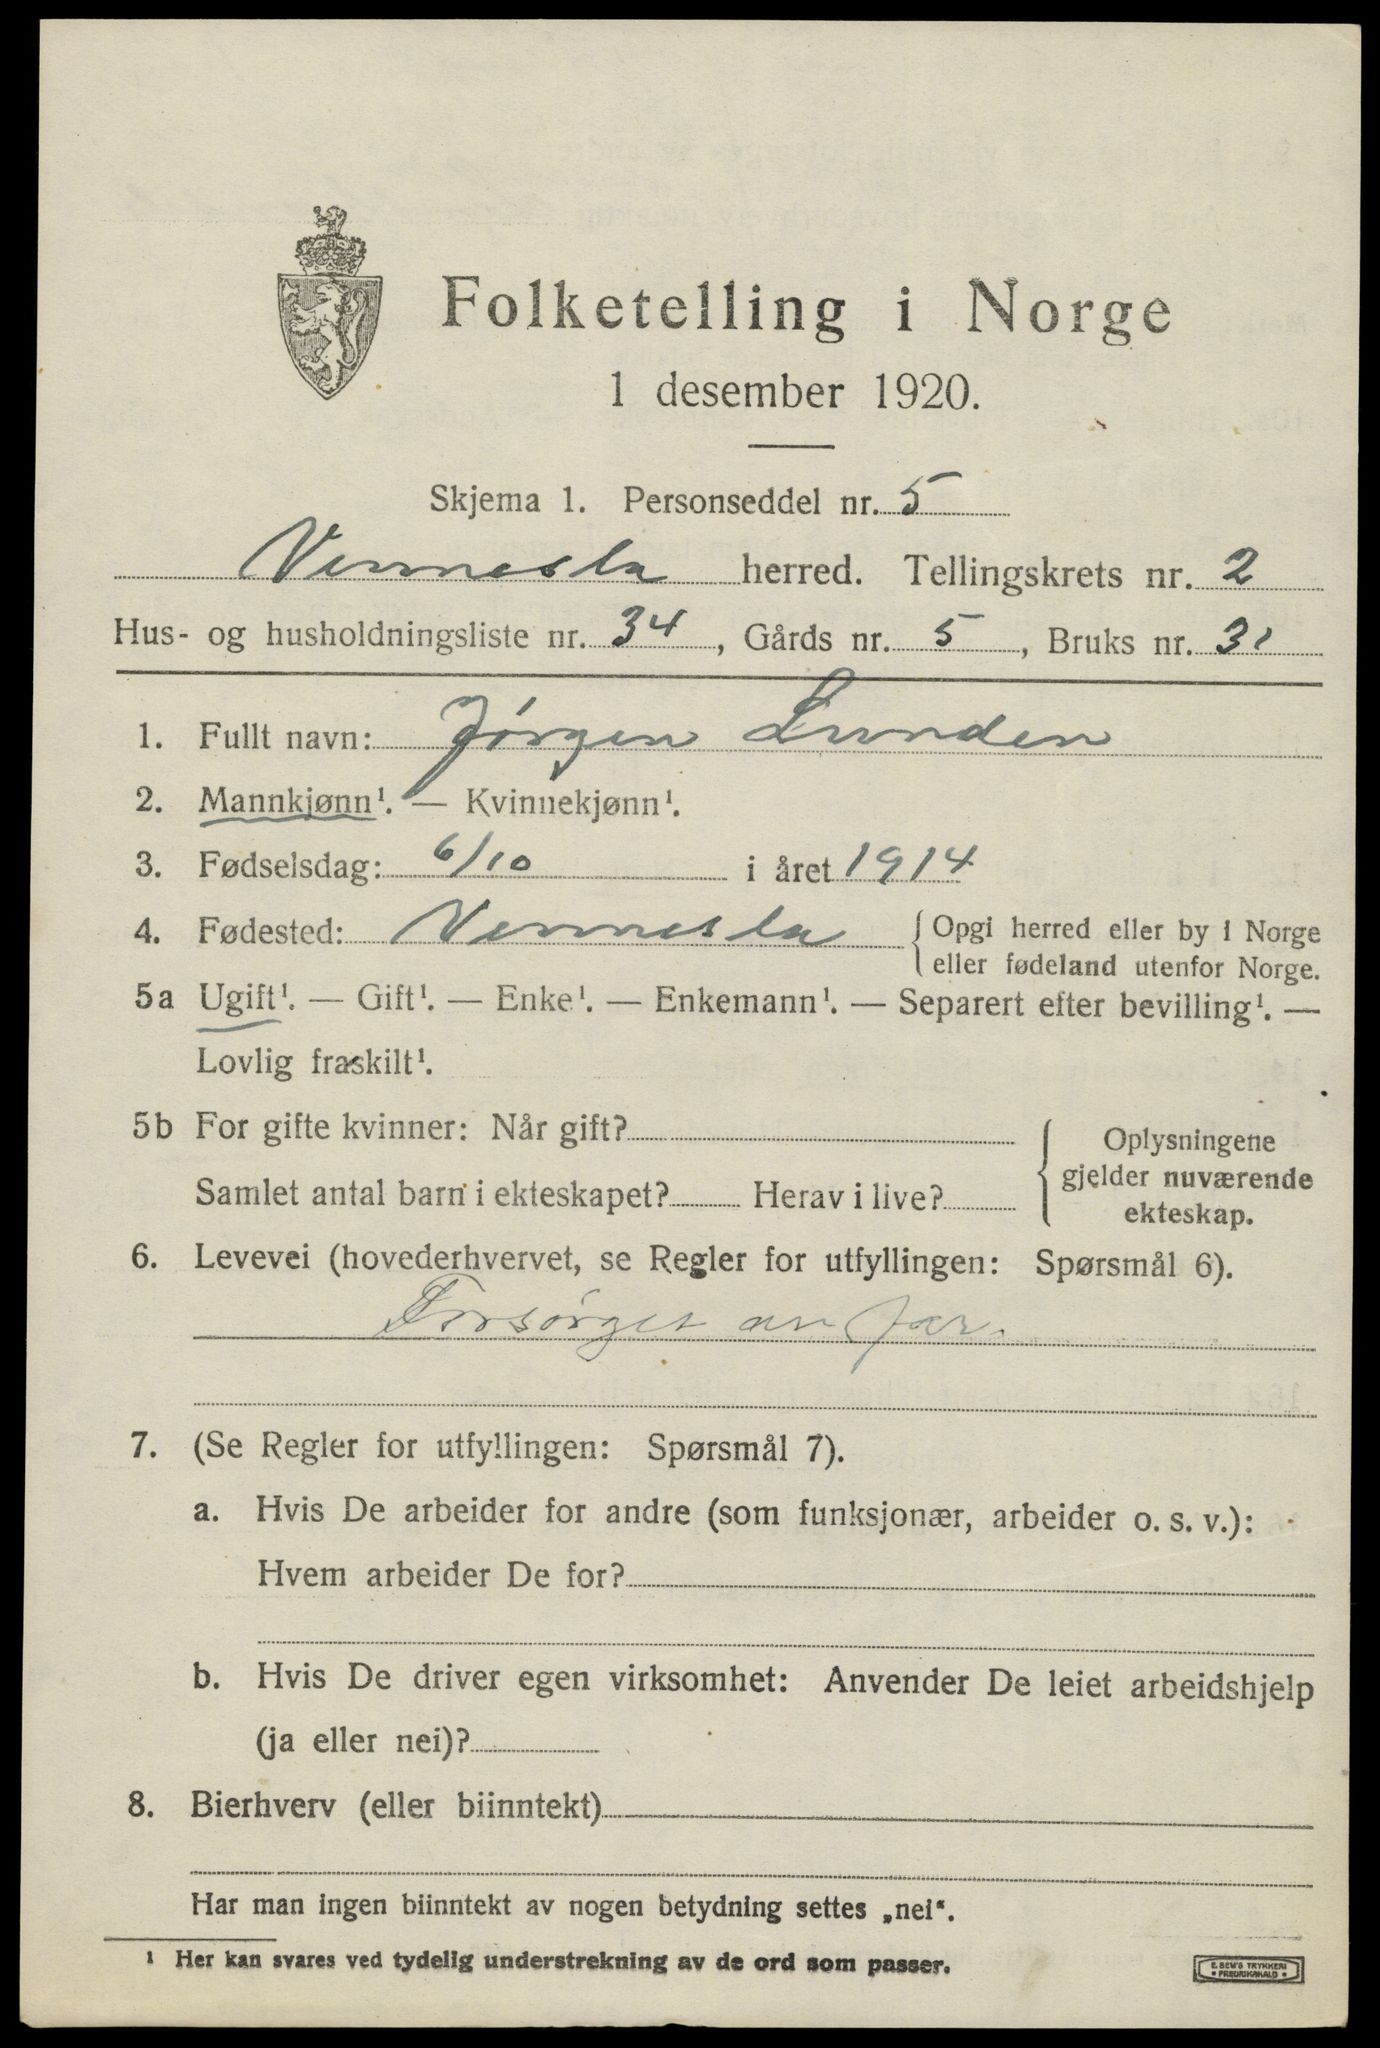 Folketelling i Norge
1 desember 1920.
Skjema 1. Personseddel nr. 5
Vennesla herred. Tellingskrets nr. 2
Hus- og husholdningsliste nr. 34, Gårds nr. 5, Bruks nr. 31
1. Fullt navn: Jørgen Lunden
2. Mannkjønn¹. — Kvinnekjønn¹.
3. Fødselsdag: 6/10 i året 1914
4. Fødested: Vennesla { Opgi herred eller by i Norge
eller fødeland utenfor Norge.
5a Ugift¹. — Gift¹. — Enke¹. — Enkemann¹. — Separert efter bevilling¹. —
Lovlig fraskilt¹.
5b For gifte kvinner: Når gift?
Samlet antal barn i ekteskapet? Herav i live?
{ Oplysningene
gjelder nuværende
ekteskap.
6. Levevei (hovederhvervet, se Regler for utfyllingen: Spørsmål 6).
Forsørget av far.
7. (Se Regler for utfyllingen: Spørsmål 7).
a. Hvis De arbeider for andre (som funksjonær, arbeider o. s. v.):
Hvem arbeider De for?
b. Hvis De driver egen virksomhet: Anvender De leiet arbeidshjelp
(ja eller nei)?
8. Bierhverv (eller biinntekt)
Har man ingen biinntekt av nogen betydning settes „nei“.
¹ Her kan svares ved tydelig understrekning av de ord som passer.
E. SEM'S TRYKKERI
• FREDRIKSHALD •